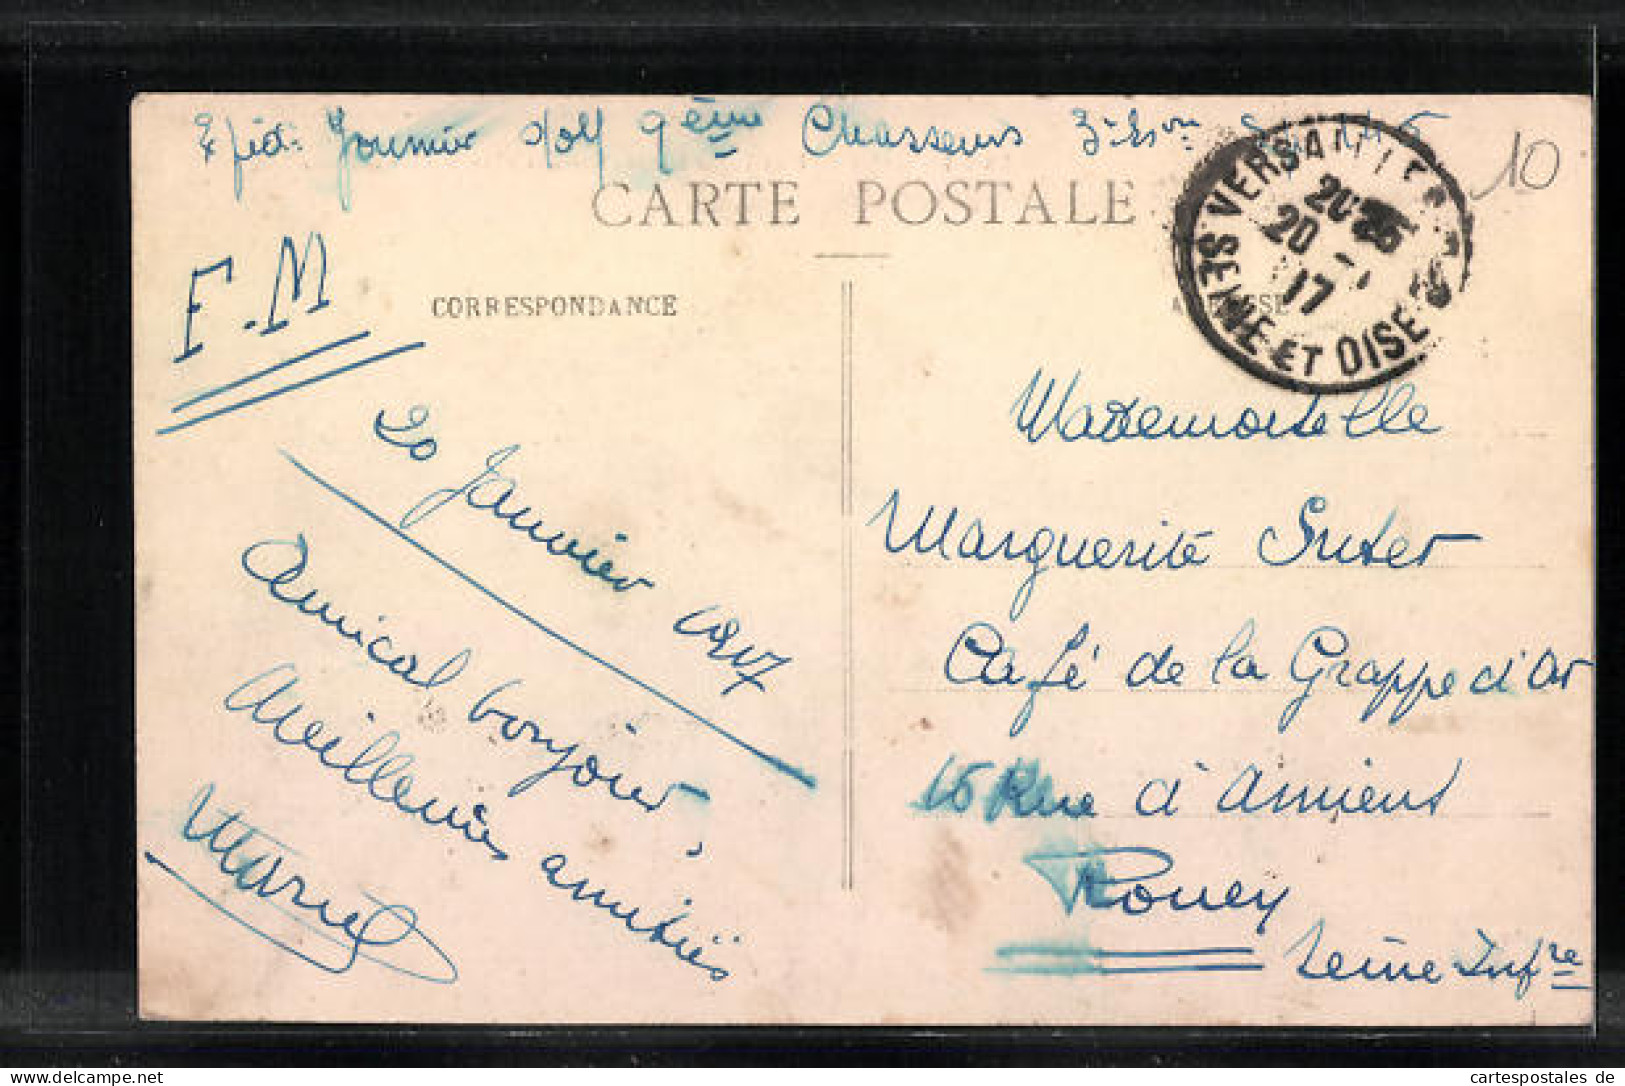 Expéd: 9ème Chasseurs
10
CARTE POSTALE
VERSAILLES
20 25
20 - 1
17
SEINE ET OISE
F.M
CORRESPONDANCE
20 Janvier 1917
Amical bonjour,
Meilleures amitiés
Marcel
Mademoiselle
Marguerite Suter
Café de la Grappe d'Or
15 Rue d'Amiens
Rouen
Seine Infre
cartespostales de